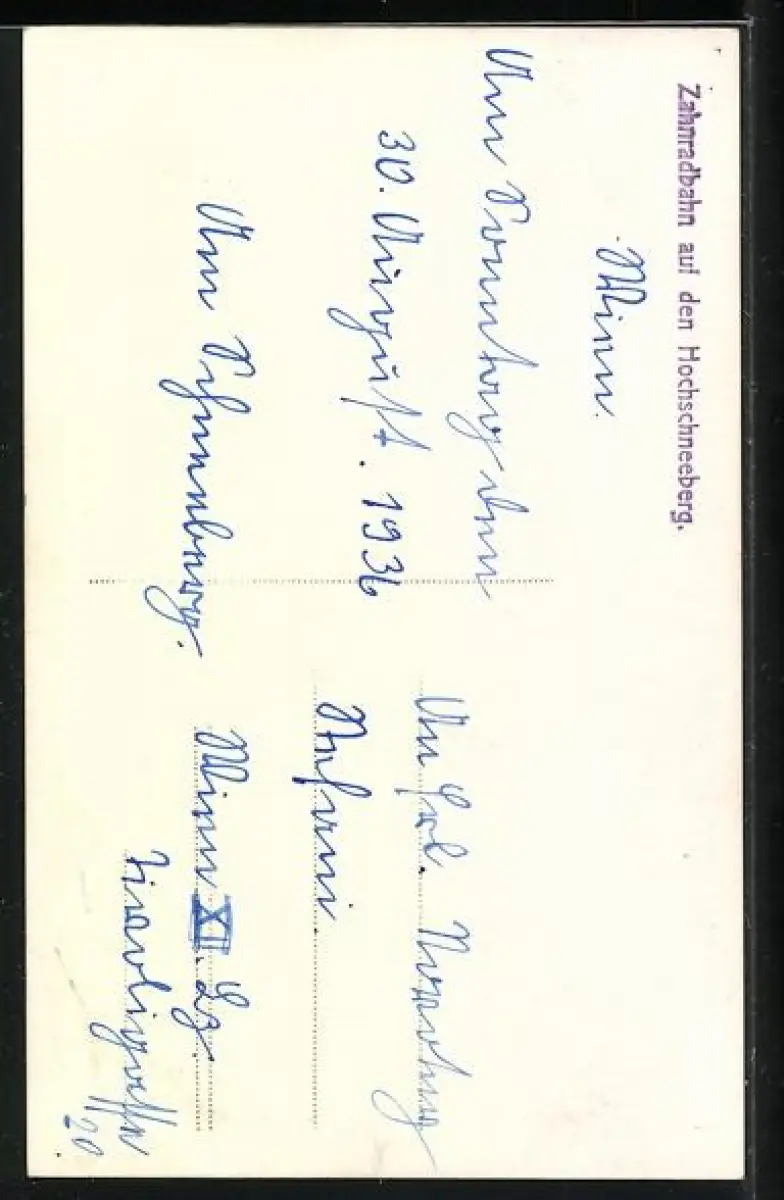 Zahnradbahn auf den Hochschneeberg.
Wien.
Am Sonntag den
30. August. 1936
Am Schneeberg.
An Frl. Nowotny
Stefani.
Wien XII.
Tivoligasse
20.